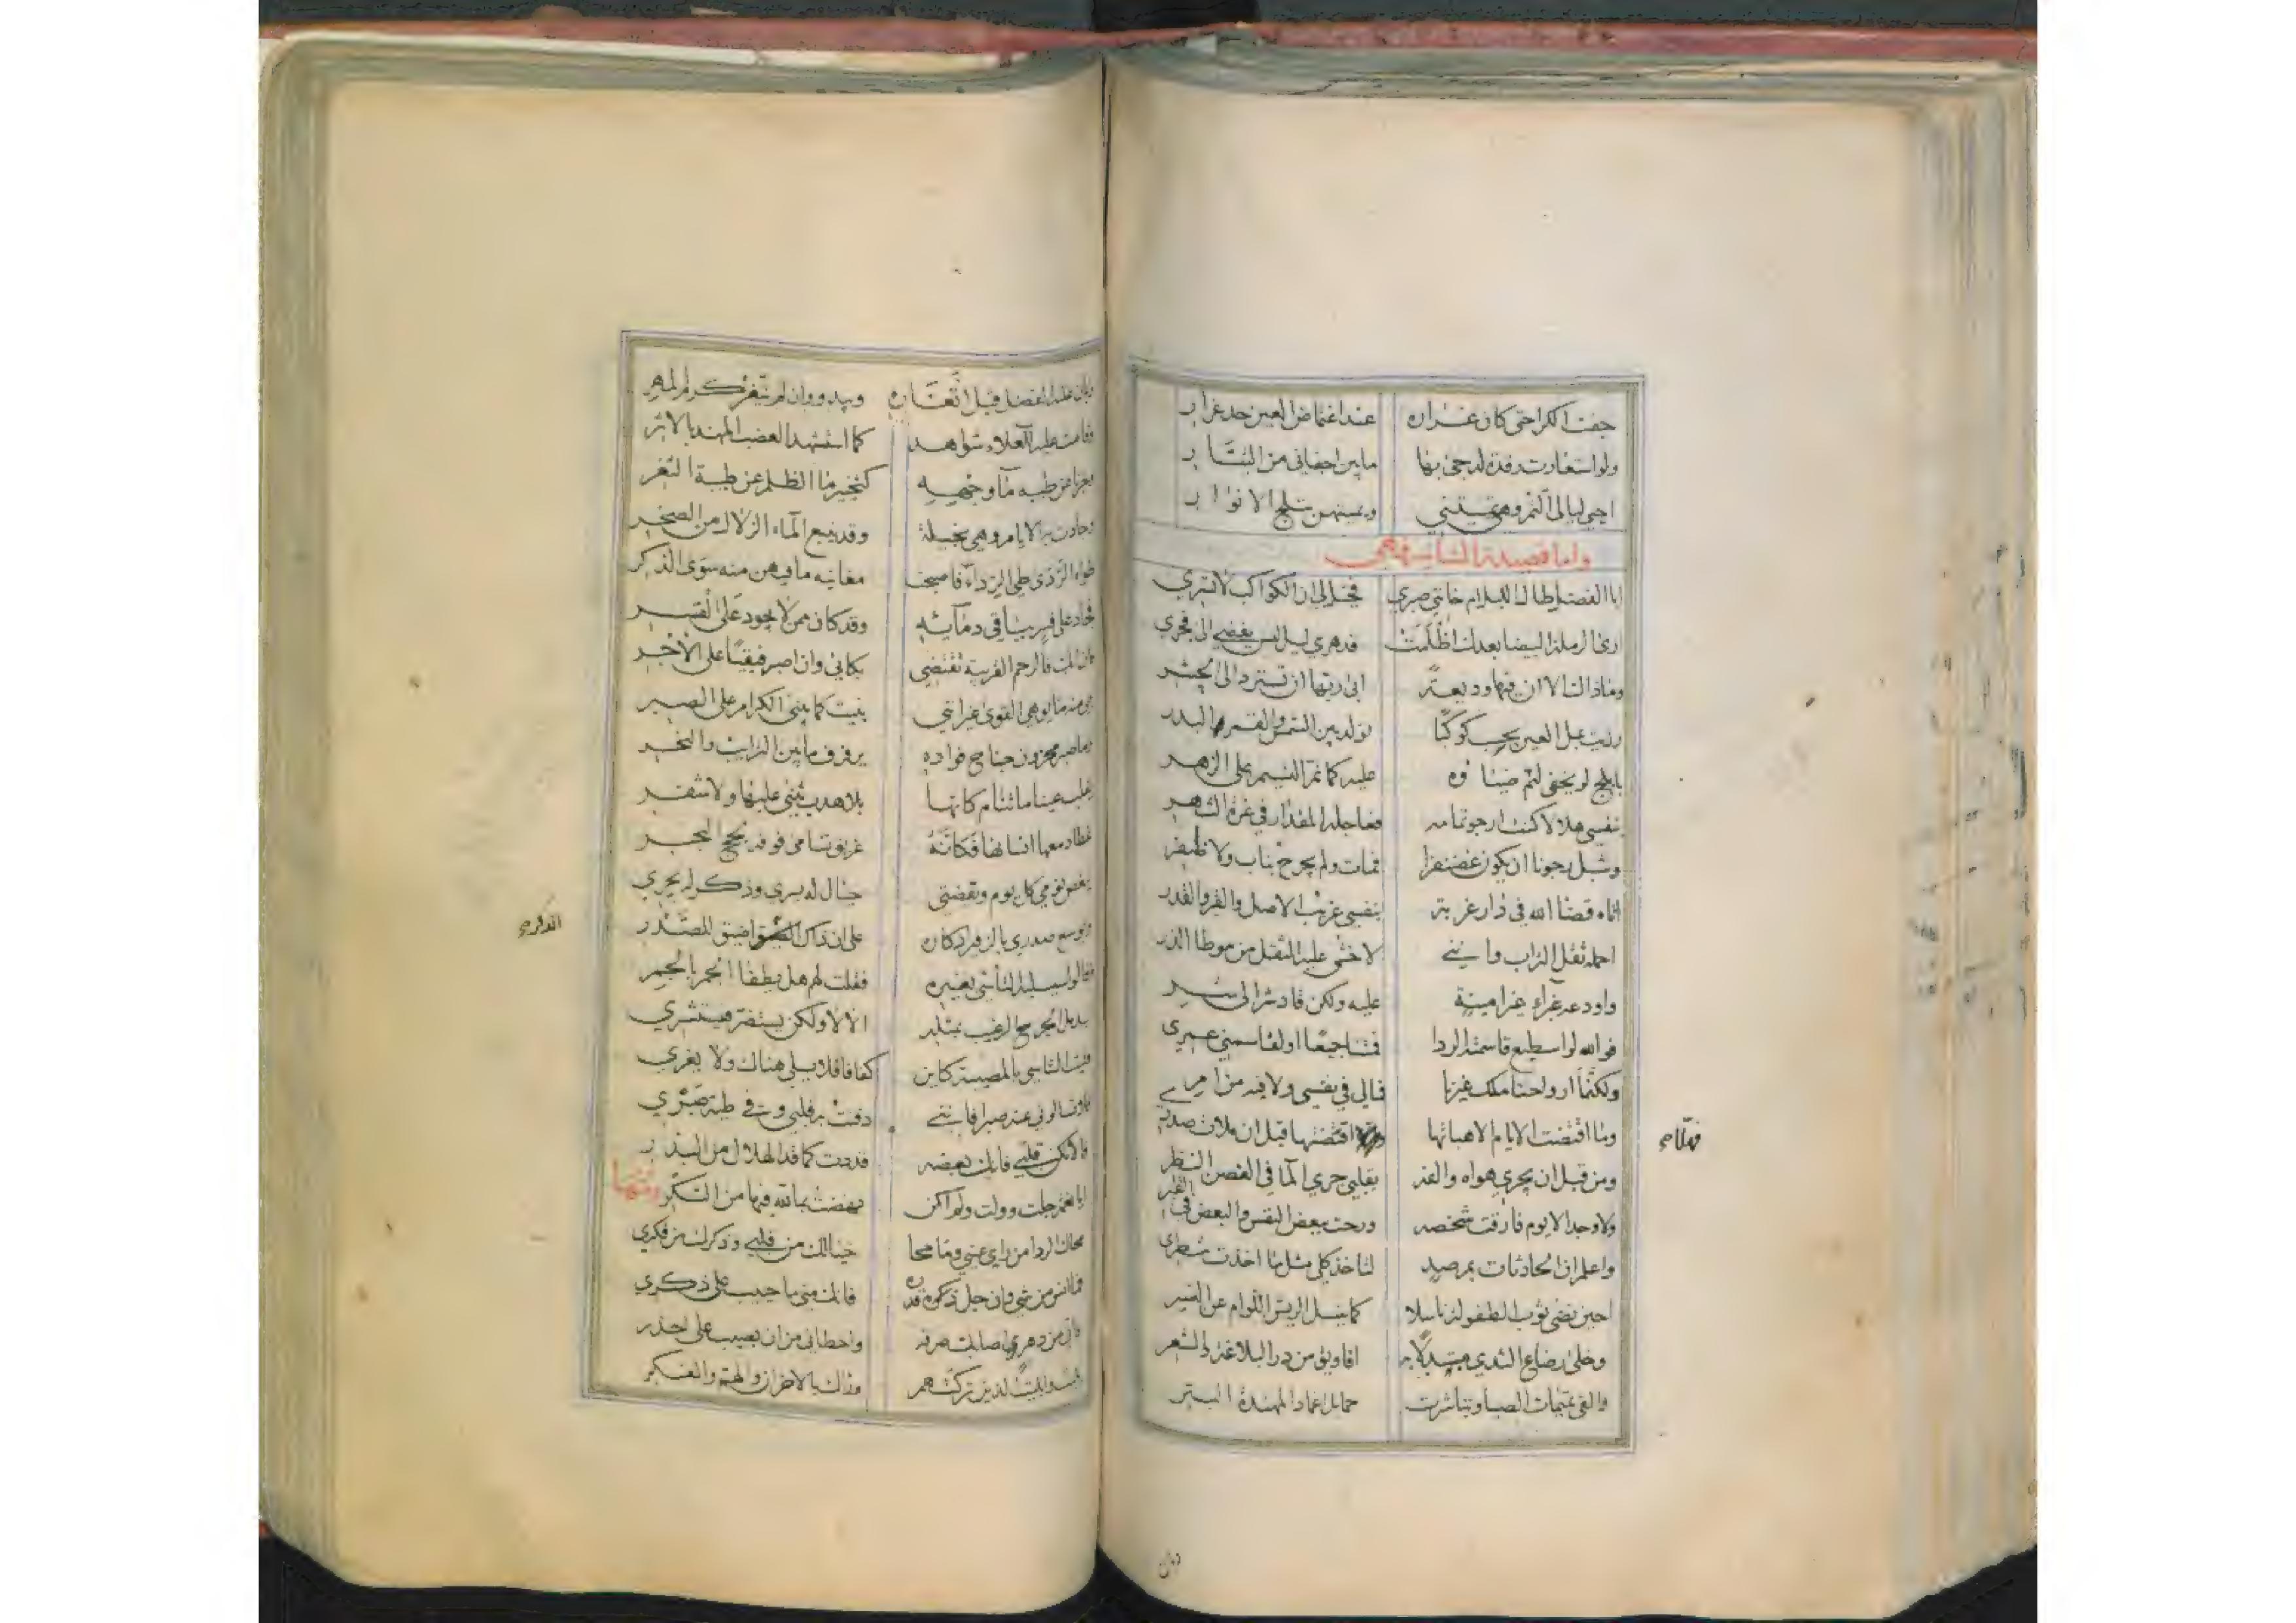 جفت الكرا حتى كان غراره عند اغتماض العين حد غرار
ولو استعارت رقدة لدجى بها ما بين اجفاني من التيار
احيي ليالي التم وهي تميتني ويميتهن تبلج الانوار
واما قصيدته الثانية فهي
ابا الفضل طال الليل ام خانني صبري فخيل لي ان الكواكب لا تسري
ارى الرملة البيضا بعدك اظلمت فدهري ليل ليس يفضي الى فجري
وماذا لنا الا ان فيها وديعة ابى ربها ان تسترد الى الحشر
رزيت بمل العين يحسب كوكبا تولد بين الشمس والقمر البدر
بابلج لو يخفى لنم ضياؤه عليه كما نم النسيم على الزهر
بنفسي هلالا كنت ارجو تمامه فعاجله المقدار في غرة الشهر
وشبل رجونا ان يكون غضنفرا فمات ولم يجرح بناب ولا ظفر
اتاه قضا الله في دار غربة بنفسي غريب الاصل والقبر والقدر
احمله ثقل التراب وانني لاخشى عليه الثقل من موطا الذر
واودعه غبراء غير امينة عليه ولكن قاد شر الى شر
فوالله لو اسطيع قاسمته الردا فمتنا جميعا او لقاسمني عمري
ولكنما ارواحنا ملك غيرنا فمالي في نفسي ولا فيه من امر
وما اقتضت الايام الا هباتها فهلا اقتضتها قبل ان ملات صدري
ومن قبل ان يجري هواه والفه بقلبي جري الما في الغصن النظر
ولا وجد الا يوم فارقت شخصه ورحت ببعض النفس والبعض في القبر
واعلم ان الحادثات بمرصد لتاخذ كلي مثل ما اخذت شطري
احين نضى ثوب الطفولة ناسلا كما ينسل الريش اللوام عن النسر
وخلى رضاع الثدي مستبدلا به افاويق من در البلاغة والشعر
والقى تميمات الصبا وتباشرت حمايل اغماد المهندة البتر
فهلا
وبان عليه الفضل قبل اثغاره ويبدو وان لم يثغر كرم المهر
وقامت عليه للعلاء شواهد كما استشهد العضب المهند بالاثر
يخبرنا عن طيبه مآ وجهه كتخبيرنا الظلم عن طيبة الثغر
وجادت به الايام وهي بخيلة وقد ينبع الماء الزلال من الصخر
طواه الردى طي الرداء فاصبحت مغانيه ما فيهن منه سوى الذكر
فجاد على قبر باقي دمآيثه وقد كان ممن لا يجود على القبر
بكاني وان اصبر فبقيا على الاجر
بي منه ما يوهي القوى غير انني بنيت كما يبنى الكرام على الصبر
وما صبر محزون جناح فواده يرفرف ما بين الترايب والنحر
يقلب عينا ما تنام كانها بلا هدب يثنى عليها ولا شفر
غطا دمعها انسانها فكانه غريق تسامى فوقه لجج البحر
ينغص نومي كل يوم ويقضتي خيال له يسري وذكر له يجري
ويوسع صدري بالزفير ادكاره على ان ذاك اضيق للصدر
وقالوا سيسليه التأسي بغيره فقلت لهم هل يطفا الجمر بالجمر
بديل الجرح الرغيب بمثله الا لا ولكن يستضر
فليت التاسي بالمصيبة كاين كفافا فلا يسلي هناك ولا يغري
ولا تسالوني عنه صبرا فانني دفنت به قلبي وفي طيه صبري
فالا تكن قلبي فانك بعضه قددت كما قد الهلال من البدر
ايا نعمة جلت وولت ولم اكن نهضت بما لله فيها من الشكر ومنها
محاك الردا من راي عيني وما محا خيالك من قلبي وذكرك من فكري
فما انس من شي وان جل قدره فانك مني يا حبيب على ذكري
فاني من دهري اصابت صرفه واخطاني من ان يصيب على حذر
وذاك بالاحزان والهم والفكر
الذكره